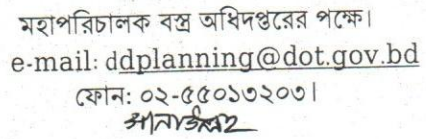 মহাপরিচালক বস্ত্র অধিদপ্তরের পক্ষে।
e-mail: ddplanning@dot.gov.bd
ফোন: ০২-৫৫০১৩২০৩।